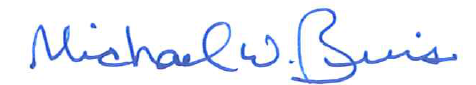 Michael W. Buis